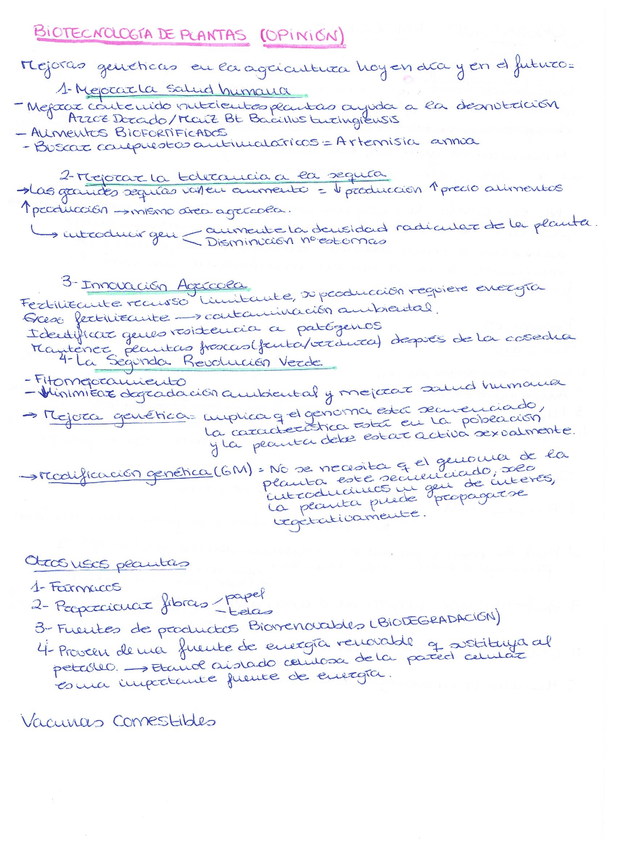 BIOTECNOLOGÍA DE PLANTAS (OPINIÓN)
Mejoras genéticas en la agricultura hoy en día y en el futuro=
1- Mejorar la salud humana
- Mejorar contenido nutrientes plantas ayuda a la desnutrición
Arroz Dorado/Maíz Bt Bacillus turingiensis
- Alimentos BIOFORTIFICADOS
- Buscar compuestos antimaláricos = Artemisia annua
2- Mejorar la tolerancia a la sequía
→ Las grandes sequías van en aumento = ↓ producción ↑ precio alimentos
↑ producción → mismo área agrícola.
↳ introducir gen < aumente la densidad radicular de la planta.
Disminución nº estomas
3- Innovación Agrícola
Fertilizante recurso limitante, producción requiere energía
Exceso fertilizante → contaminación ambiental.
Identificar genes resistencia a patógenos
Mantener plantas frescas (fruta/verdura) después de la cosecha
4- La Segunda Revolución Verde
- Fitomejoramiento
- Minimizar degradación ambiental y mejorar salud humana
→ Mejora genética = implica q el genoma está secuenciado,
la característica está en la población
y la planta debe estar activa sexualmente.
→ Modificación genética (GM) = No se necesita q el genoma de la
planta este secuenciado, solo
introducimos un gen de interés,
la planta puede propagarse
vegetativamente.
Otros usos plantas
1- Fármacos
2- Proporcionar fibras - papel
- telas
3- Fuentes de productos Biorrenovables (BIODEGRADACIÓN)
4- Proveen de una fuente de energía renovable q sustituya al
petróleo. → Etanol aislado celulosa de la pared celular
es una importante fuente de energía.
Vacunas Comestibles